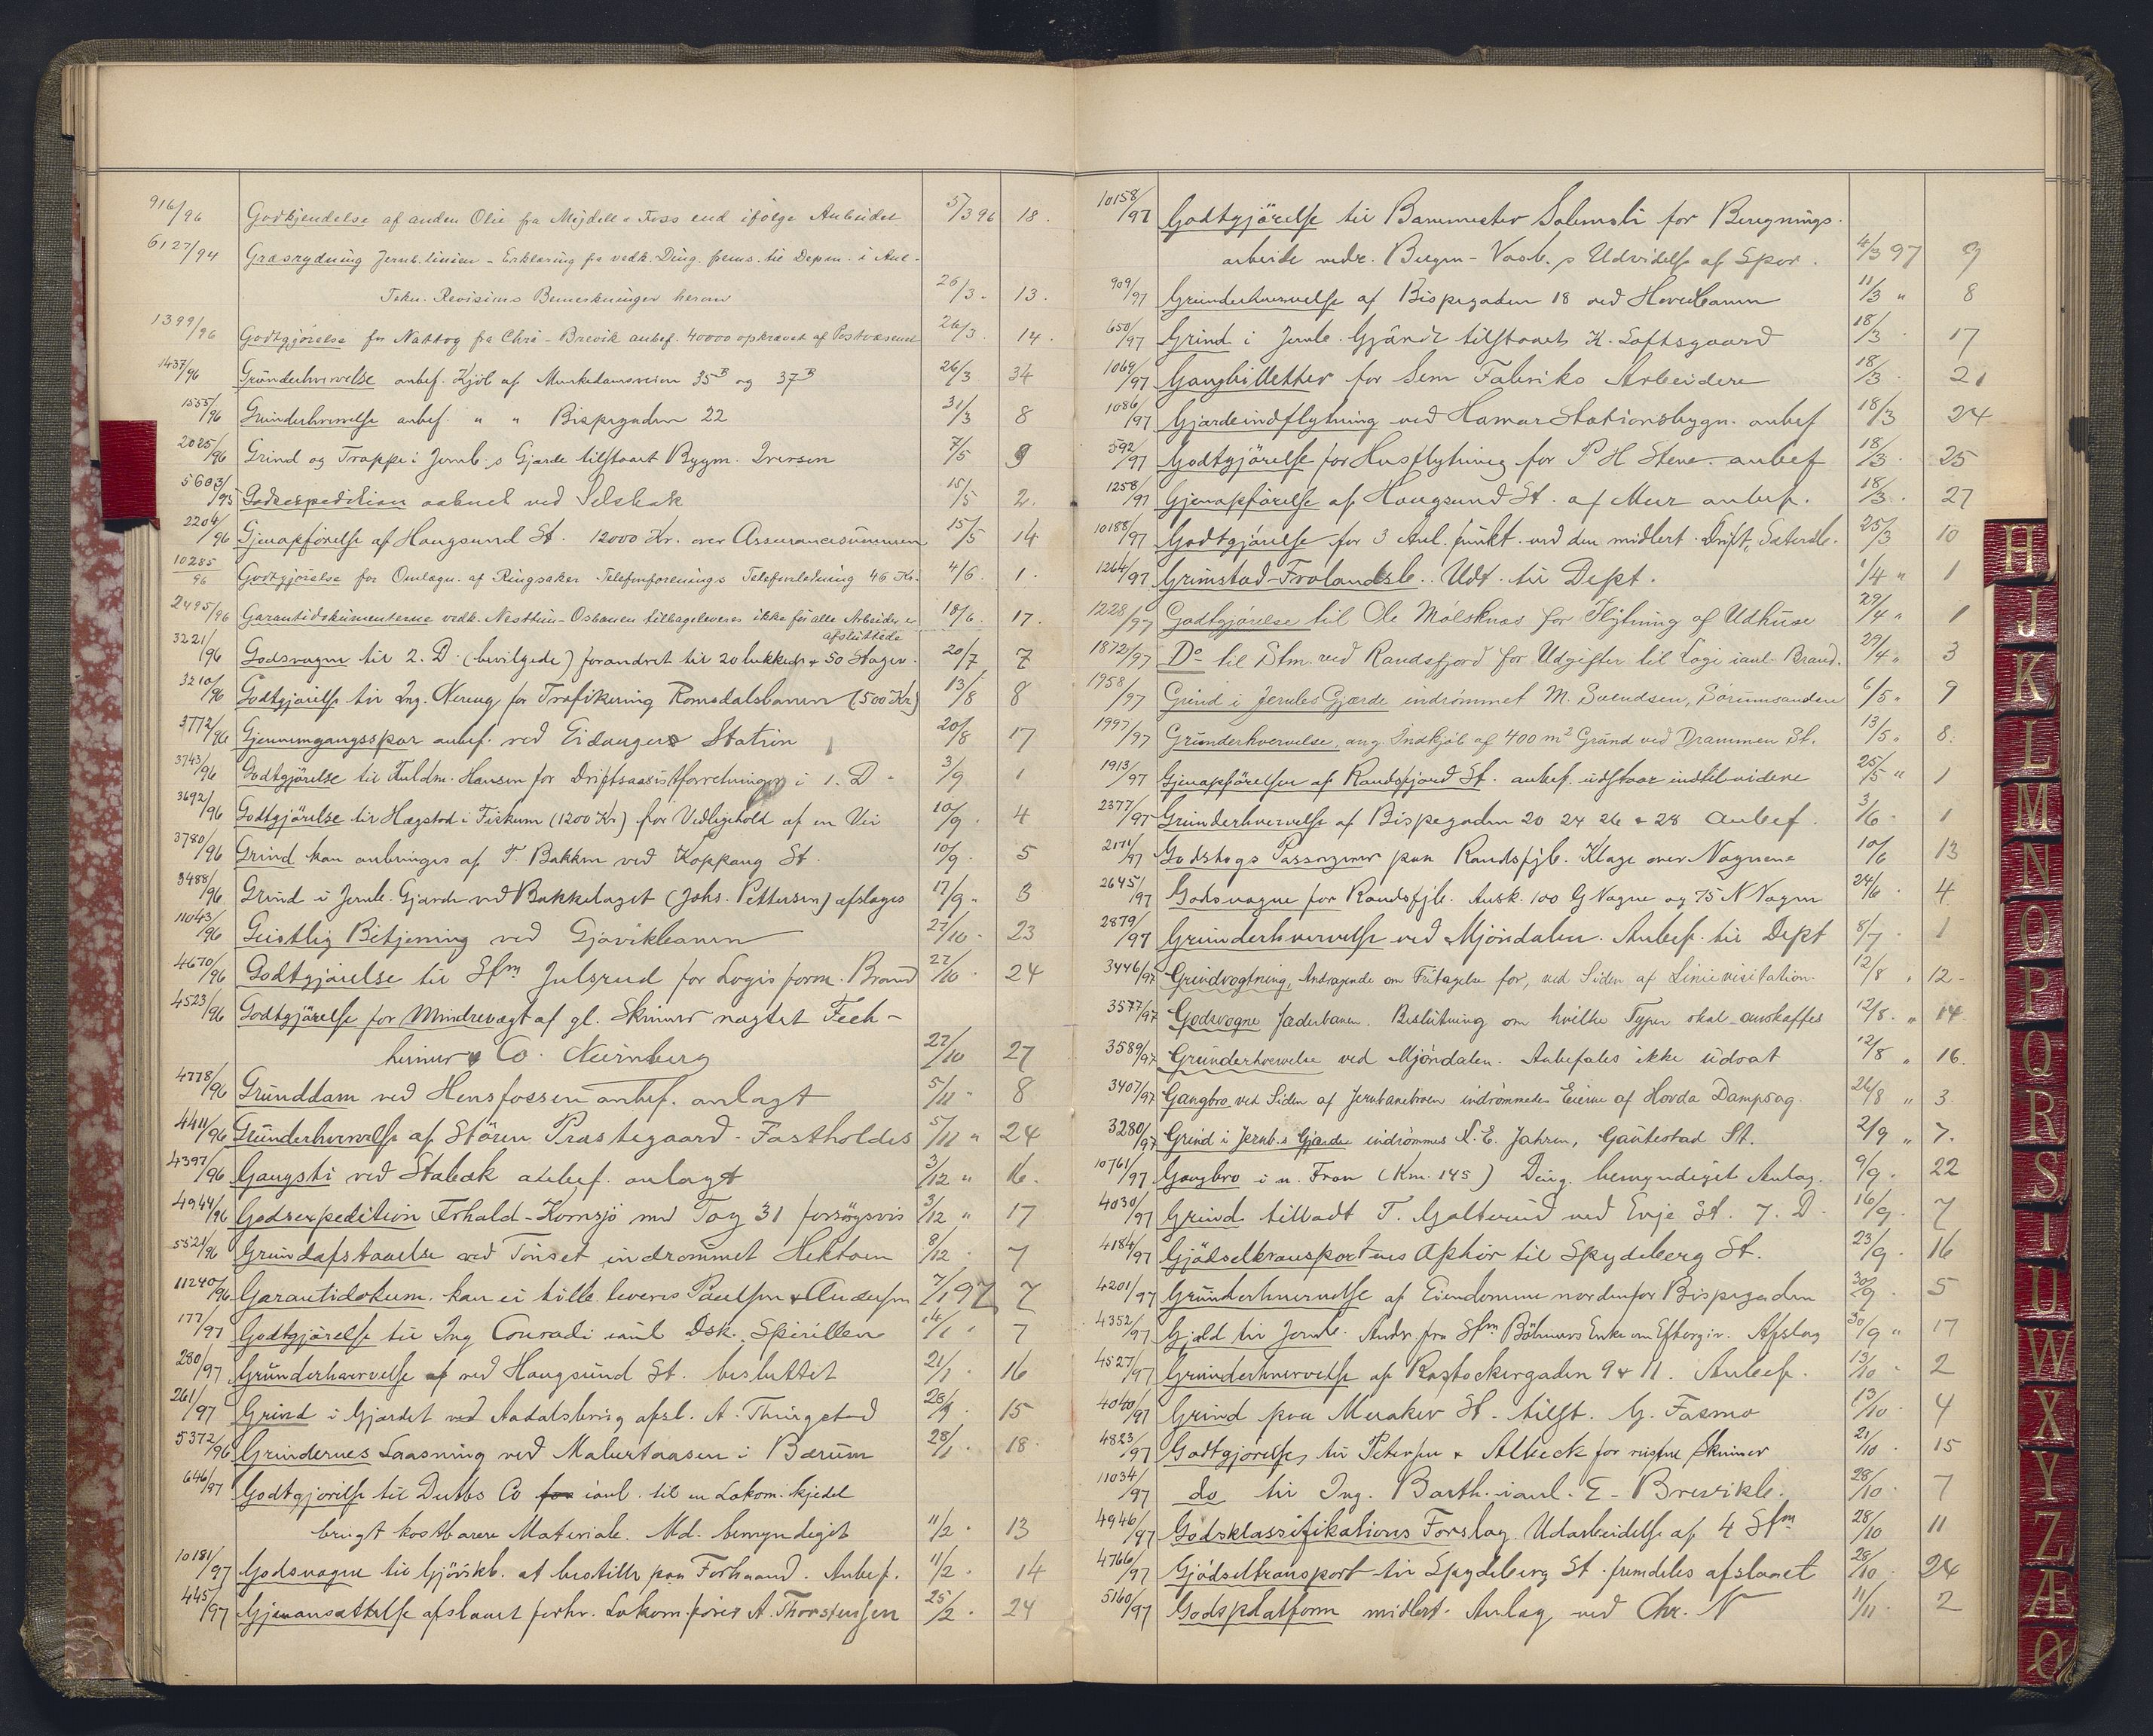 916/96 Godkjendelse af anden Olie fra Mejdell & Foss end ifølge Anbudet 5/3 96 18.
6127/94 Græsrydning Jernb.linien - Erklæring fra vedk. Ding. frems. til Depm. i Anl-
Tekn. Revisions Bemerkninger herom 26/3 - 13.
1399/96 Godtgjørelse for Nattog fra Chra - Brevik anbef. 40000 opkrævet af Postvæsenet 26/3. 14.
1437/96 Grunderhvervelse anbef. Kjöb af Munkedamsveien 35B og 37B 26/3 34
1555/96 Grunderhvervelse anbef. " " Bispegaden 22 31/3 8
2025/96 Grind og Trappe i Jernb.s Gjærde tilstaaet Bygm. Iversen 7/5 9
5603/95 Godsexpedition aabnet ved Selsbak 15/5 2.
2204/96 Gjenopförelse af Haugsund St. 12000 Kr. over Assurancesummen 15/5 14
10285/96 Godtgjørelse for Omlægn. af Ringsaker Telefonforenings Telefonledning 46 Kr. 4/6. 1.
2495/96 Garantidokumenterne vedk. Nesttun-Osbanen tilbageleveres ikke før alle Arbeider er 18/6. 17.
afsluttede
3221/96 Godsvogne til 2. D. (bevilgede) forandret til 20 lukkede & 50 Stagev. 20/7 7
3210/96 Godtgjørelse til Ing. Nerug for Trafikering Romsdalsbanen (500 Kr) 13/8 8
3772/96 Gjennemgangsspor anbef. ved Eidanger Station 20/8 17
3743/96 Godtgjörelse til Fuldm. Hansen for Driftsassistforretninger i 1. D. 3/9 1
3692/96 Godtgjörelse til Hægstad i Fiskum (1200 Kr) for Vedligehold af en Vei 10/9. 4
3780/96 Grind kan anbringes af T. Bakken ved Koppang St. 10/9. 5
3488/96 Grind i Jernb. Gjærde ved Bakkelaget (Johs. Pettersen) afslages 17/9. 3
11043/96 Geistlig Betjening ved Gjøvikbanen 27/10 - 23
4670/96 Godtgjörelse til Stm Julsrud for Logis form. Brand 27/10. 24
4523/96 Godtgjörelse for Mindrevægt af gl. Skinner nægtet Fech-
heimer & Co. Nürnberg 27/10 27
4778/96 Grunddam ved Hensfossen anbef. anlagt 5/11 " 8
4411/96 Grunderhvervelse af Stören Præstegaard - Fastholdes 5/11 " 24
4397/96 Gangsti ved Stabæk anbef. anlagt 3/12 " 16.
4944/96 Godsexpedition Frhald-Kornsjö med Tog 31 forsøgsvis 3/12 " 17
5521/96 Grundafstaaelse ved Tönset indrømmet Hektoen 8/12 7
11240/96 Garantidokum. kan ei tilb. leveres Paulsen & Andersen 7/1 97 7
177/97 Godtgjörelse til Ing Conradi ianl Dsk. Spirillen 14/1 " 7
280/97 Grunderhvervelse af ved Haugsund St. besluttet 21/1. 16
261/97 Grind i Gjærdet ved Aadalsbrug afsl. A. Thingstad 28/1. 15
5372/96 Grindernes Laasning ved Malurtaasen i Bærum 28/1 18.
646/97 Godtgjørelse til Dubs Co for ianl. til en Lokom. kjedel
brugt kostbarere Materiale. Md. bemyndiget 11/2 . 13
10181/97 Godsvogne til Gjövikb. at bestille paa Forhaand. Anbef. 11/2. 14
445/97 Gjenansættelse afslaaet forhv. Lokom.fører A. Thorstensen 25/2. 24
10158/97 Godtgjörelse til Banemester Solemsli for Beregnings-
arbeide vedr. Bergen-Vosb.s Udvidelse af Spor. 4/3 97 9
909/97 Grunderhvervelse af Bispegaden 18 ved Hovedbanen 11/3 " 8
650/97 Grind i Jernb. Gjærde tilstaaet K. Loftsgaard 18/3. 17
1069/97 Gangbilletter for Sem Fabriks Arbeidere 18/3. 21
1086/97 Gjærdeindflytning ved Hamar Stationsbygn. anbef 18/3 24
592/97 Godtgjörelse for Husflytning for P H Stene. anbef 18/3. 25
1258/97 Gjenopførelse af Haugsund St. af Mur anbef. 18/3. 27
10188/97 Godtgjørelse for 3 Anl. funkt. ved den midlert. Drift, Sæterdb. 25/3 10
1264/97 Grimstad-Frolandsb. Udt. til Dept. 1/4 " 1
1228/97 Godtgjørelse til Ole Mölsknæs for Flytning af Udhuse 29/4 " 1
1872/97 Do til Stm. ved Randsfjord for Udgifter til Logi ianl. Brand. 29/4 " 3
1958/97 Grind i Jernb.s Gjærde indrømmet M. Svendsen, Sørumsanden 6/5 " 9
1997/97 Grunderhvervelse, ang. Indkjøb af 400 m² Grund ved Drammen St. 13/5 " 8.
1913/97 Gjenopførelsen af Randsfjord St. anbef. udstaar indtil videre 25/5 " 1
2377/97 Grunderhvervelse af Bispegaden 20 24 26 & 28 Anbef. 3/6 - 1
2171/97 Godstogs Passagerer paa Randsfjb. Klage over Vognene 10/6 13
2645/97 Godsvogne for Randsfjb. Ansk. 100 G Vogne og 75 N Vogne 24/6. 4
2879/97 Grunderhvervelse ved Mjöndalen. Anbef. til Dept 8/7. 1
3446/97 Grindvogtning, Andragende om Fritagelse for, ved Siden af Linievisitation. 12/8 " 12 -
3577/97 Godsvogne Jæderbanen. Beslutning om hvilke Typer skal anskaffes 12/8. " 14.
3589/97 Grunderhvervelse ved Mjöndalen. Anbefales ikke udsat 12/8 " 16.
3407/97 Gangbro ved Siden af Jernbanebroen indrømmedes Eierne af Hovda Dampsag. 26/8 " 3.
3280/97 Grind i Jernb.s Gjærde indrömmes N. E. Jahren, Gautestad St. 2/9 " 7.
10761/97 Gangbro i n. Fron (Km. 145) Ding. bemyndiget Anlag. 9/9. 22
4030/97 Grind tilladt T. Galterud ved Evje St. 7. D. 16/9. 7
4184/97 Gjödseltransportens Ophør til Spydeberg St. 23/9. 16
4201/97 Grunderhvervelse af Eiendomme nordenfor Bispegaden 30/9 5
4352/97 Gjæld til Jernb. Andr. fra Stm Böhmers Enke om Eftergiv. Afslag 30/9 " 17
4527/97 Grunderhvervelse af Rostockergaden 9 & 11. Anbef. 13/10 " 2
4040/97 Grind paa Meraker St. tilst. G. Fasmo 13/10. 4
4823/97 Godtgjørelse, til Petersen & Albeck for rustne Skinner 21/10. 15
11034/97 do til Ing. Barth. ianl. E - Brevikb. 28/10. 7
4946/97 Godsklassifikations Forslag. Udarbeidelse af 4 Stm 28/10 11
4766/97 Gjödseltransport til Spydeberg St. fremdeles afslaaet 28/10. 24
5160/97 Godsplatform midlert. Anlæg ved Chr. V 11/11. 2
H
J
K
L
M
N
O
P
Q
R
S
T
U
W
X
Y
Z
Æ
Ø